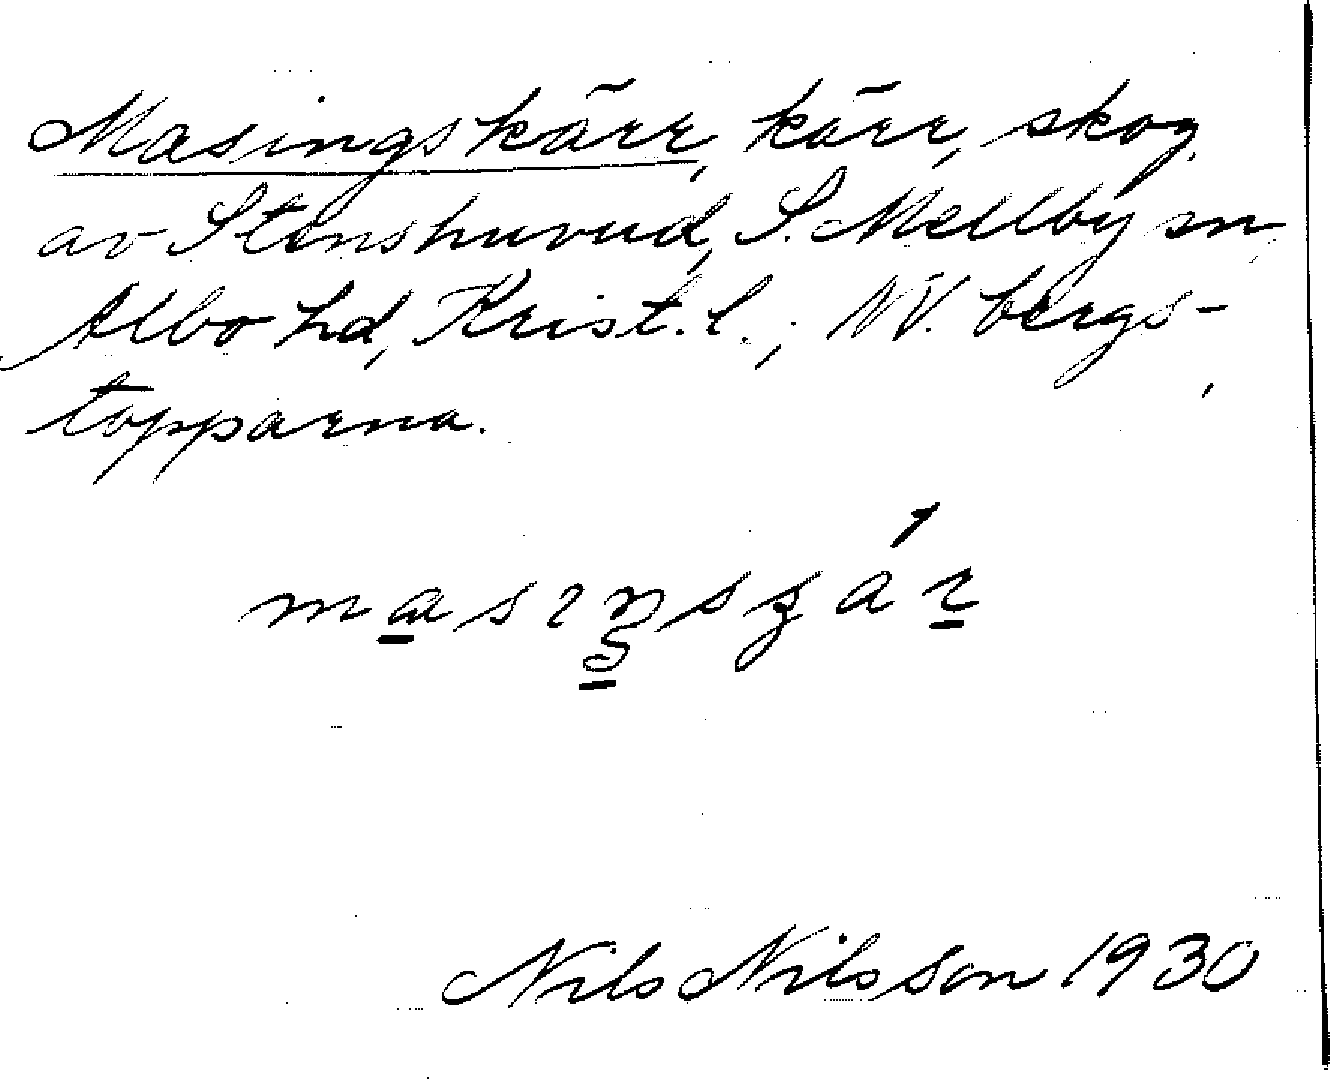 Masingskärr, kärr, skog
av Stenshuvud, S. Mellby sn
Albo hd, Krist. l.; NV. bergs-
topparna.
Nils Nilsson 1930